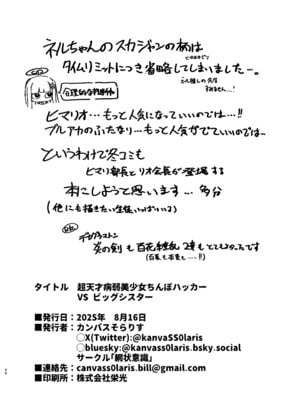 ネルちゃんのスカジャンの柄は
タイムリミットにつき省略してしまいましたー。
合理的な判断
ヒマリオ…もっと人気になっていいのでは…!!
ブルアカのふたなり…もっと人気がでていいのでは…
というわけで冬コミも
ヒマリ部長とリオ会長が登場する
本にしようと思います…多分
(他にも描きたい生徒いっぱいいる)
炎の剣も百花繚乱2章もとてもよかったです
タイトル 超天才病弱美少女ちんぽハッカー
VS ビッグシスター
■発行日：2025年 8月16日
■発行者：カンバスそらりす
◯X(Twitter):@kanvaSS0laris
◯bluesky:@kanvass0laris.bsky.social
サークル「網状意識」
■連絡先：canvass0laris.bill@gmail.com
■印刷所：株式会社栄光